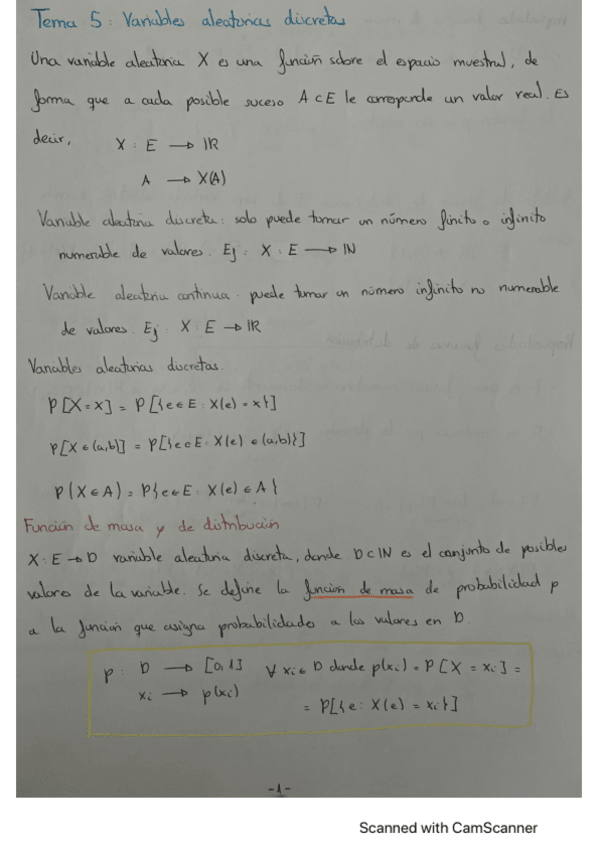 Tema 5: Variables aleatorias discretas
Una variable aleatoria X es una función sobre el espacio muestral, de
forma que a cada posible suceso A⊂E le corresponde un valor real. Es
decir,
X : E → IR
A → X(A)
Variable aleatoria discreta: solo puede tomar un número finito o infinito
numerable de valores. Ej: X : E → IN
Variable aleatoria continua: puede tomar un número infinito no numerable
de valores. Ej: X : E → IR
Variables aleatorias discretas.
P[X=x] = P[{e∈E : X(e) = x}]
P[X∈(a,b)] = P[{e∈E : X(e) ∈ (a,b)}]
P(X∈A) = P{e∈E : X(e) ∈ A}
Función de masa y de distribución
X : E → D variable aleatoria discreta, donde D⊂IN es el conjunto de posibles
valores de la variable. Se define la función de masa de probabilidad p
a la función que asigna probabilidades a los valores en D.
p : D → [0,1] ∀ xi ∈ D donde p(xi) = P[X = xi] =
xi → p(xi)
= P[{e : X(e) = xi}]
-1-
Scanned with CamScanner